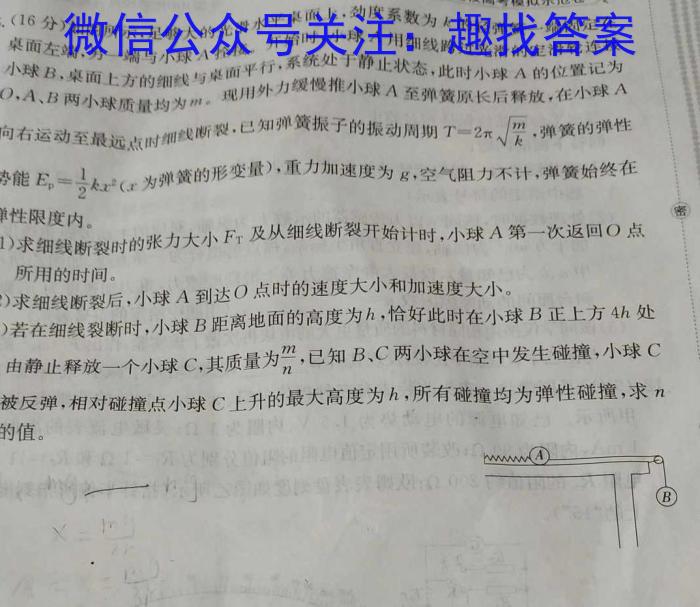 微信公众号关注：趣找答案
(16分)
桌面上,劲度系数为
桌面左端
小球B,桌面上方的细线与桌面平行,系统处于静止状态,此时小球A的位置记为
O,A、B两小球质量均为m。现用外力缓慢推小球A至弹簧原长后释放,在小球A
向右运动至最远点时细线断裂,已知弹簧振子的振动周期T=2π√(m/k),弹簧的弹性
势能Eₚ=1/2kx²(x为弹簧的形变量),重力加速度为g,空气阻力不计,弹簧始终在
弹性限度内。
1)求细线断裂时的张力大小F_T及从细线断裂开始计时,小球A第一次返回O点
所用的时间。
)求细线断裂后,小球A到达O点时的速度大小和加速度大小。
)若在细线断裂时,小球B距离地面的高度为h,恰好此时在小球B正上方4h处
由静止释放一个小球C,其质量为m/n,已知B、C两小球在空中发生碰撞,小球C
被反弹,相对碰撞点小球C上升的最大高度为h,所有碰撞均为弹性碰撞,求n
的值。
密
A
B